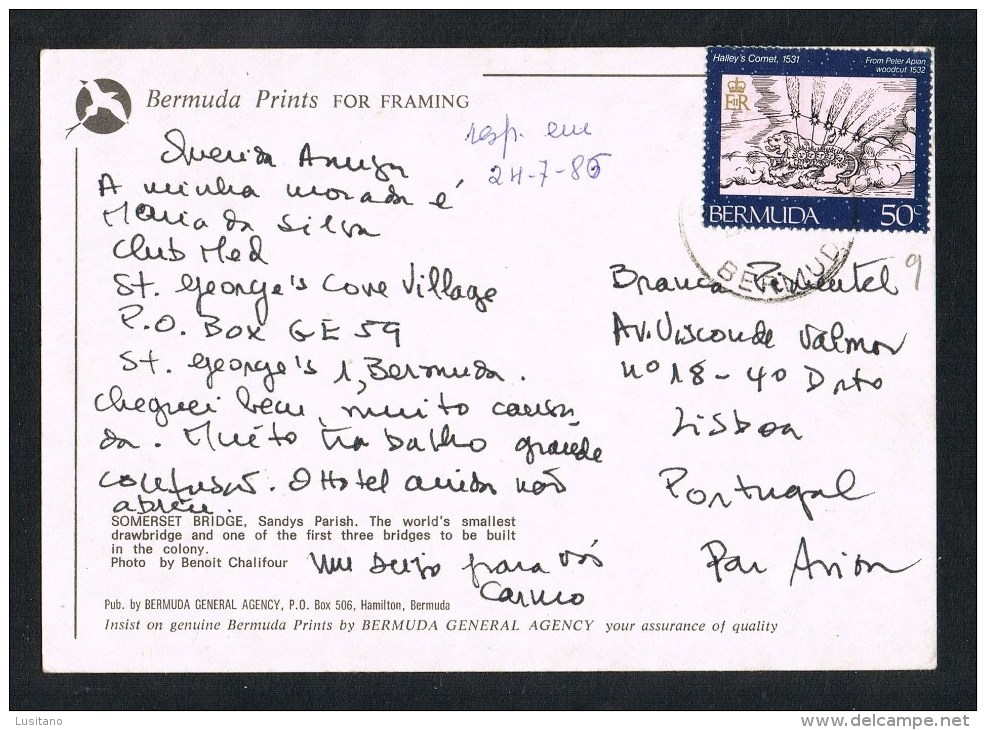 Bermuda Prints FOR FRAMING
Halley's Comet, 1531
From Peter Apian
woodcut 1532
E II R
BERMUDA 50c
BERMUDA
resp. em
24-7-86
9
Querida Amiga
A minha morada é
Maria da Silva
Club Med
St. George's Cove Village
P.O. Box GE 59
St. George's 1, Bermuda.
Cheguei bem, muito cansa
da. Muito trabalho grande
confusão. O Hotel ainda não
abriu.
Um beijo para vós
Carmo
Branca Pimentel
Av. Visconde Valmor
nº 18-4º Drto
Lisboa
Portugal
Par Avion
SOMERSET BRIDGE, Sandys Parish. The world's smallest
drawbridge and one of the first three bridges to be built
in the colony.
Photo by Benoit Chalifour
Pub. by BERMUDA GENERAL AGENCY, P.O. Box 506, Hamilton, Bermuda
Insist on genuine Bermuda Prints by BERMUDA GENERAL AGENCY your assurance of quality
Lusitano
www.delcampe.net